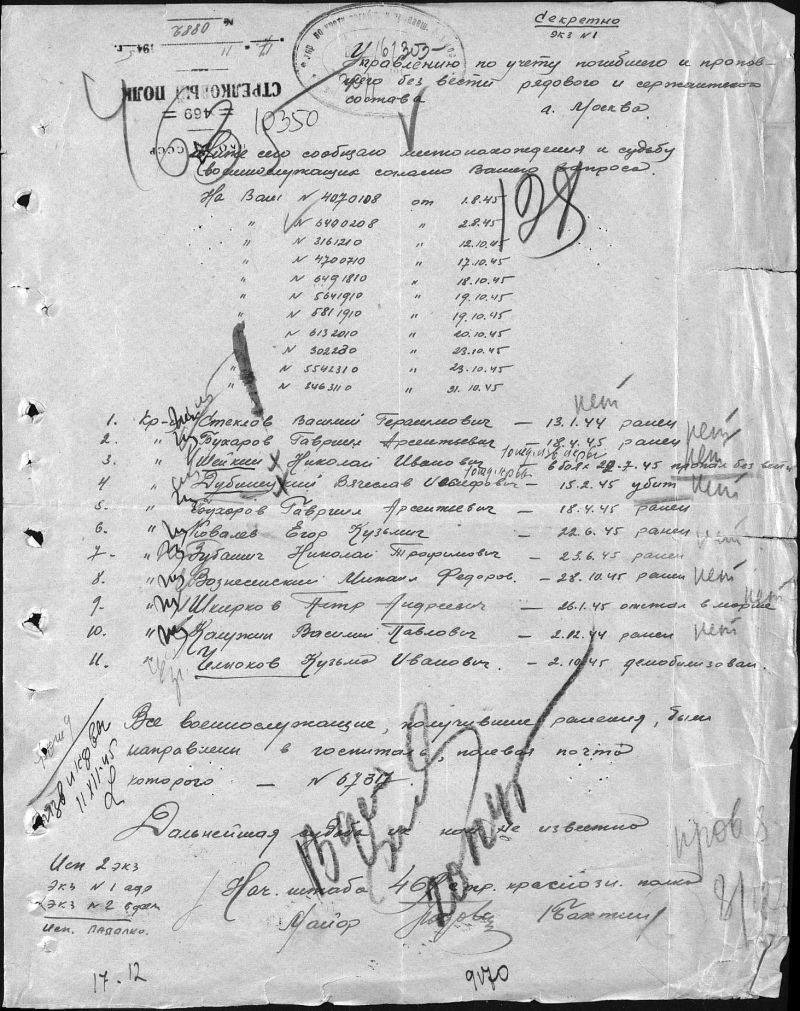 Секретно
экз N1
Управлению по учету погибшего и пропав-
шего без вести рядового и сержантского
состава
г. Москва.
161303
СТРЕЛКОВЫЙ ПОЛК
= 469 =
СССР
№ 0882
11 1945 г.
10350
Ниже сего сообщаю местонахождения и судьбу
военнослужащих согласно Вашего запроса.
128
На Ваш N 4070108 от 1.8.45
" N 6400208 " 2.8.45
" N 3161210 " 12.10.45
" N 4700710 " 17.10.45
" N 6491810 " 18.10.45
" N 5641910 " 19.10.45
" N 5811910 " 19.10.45
" N 6132010 " 20.10.45
" N 302230 " 23.10.45
" N 5542310 " 23.10.45
" N 3463110 " 31.10.45
нет
1. Кр-ц Стеклов Василий Герасимович – 13.1.44 ранен
нет
2. " Бухаров Гавриил Арсентьевич – 18.4.45 ранен
нет
3. " Шейкин Николай Иванович – в боях 22.7.45 пропал без вести
4. " Дубинский Вячеслав Иосифович – 15.2.45 убит нет
5. " Бухаров Гавриил Арсентьевич – 18.4.45 ранен
6. " Ковалев Егор Кузьмич – 22.6.45 ранен нет
7. " Зубанич Николай Трофимович – 23.6.45 ранен
8. " Вознесенский Михаил Федоров. – 28.10.45 ранен нет
9. " Шкирков Петр Андреевич – 26.1.45 отстал в марше нет
10. " Калужин Василий Павлович – 2.02.44 ранен нет
11. " Челноков Кузьма Иванович. – 2.10.45 демобилизован.
Все военнослужащие, получившие ранения, были
направлены в госпиталь, полевая почта
которого – N 67317.
11.XII.45
Дальнейшая судьба их нам не известна
20.XII.45
пров
Исп 2 экз
экз N 1 адр
экз N 2 в дело
Исп. Падалко.
Нач. штаба 469 стр. краснозн. полка
Майор Бахтин
17.12
9170